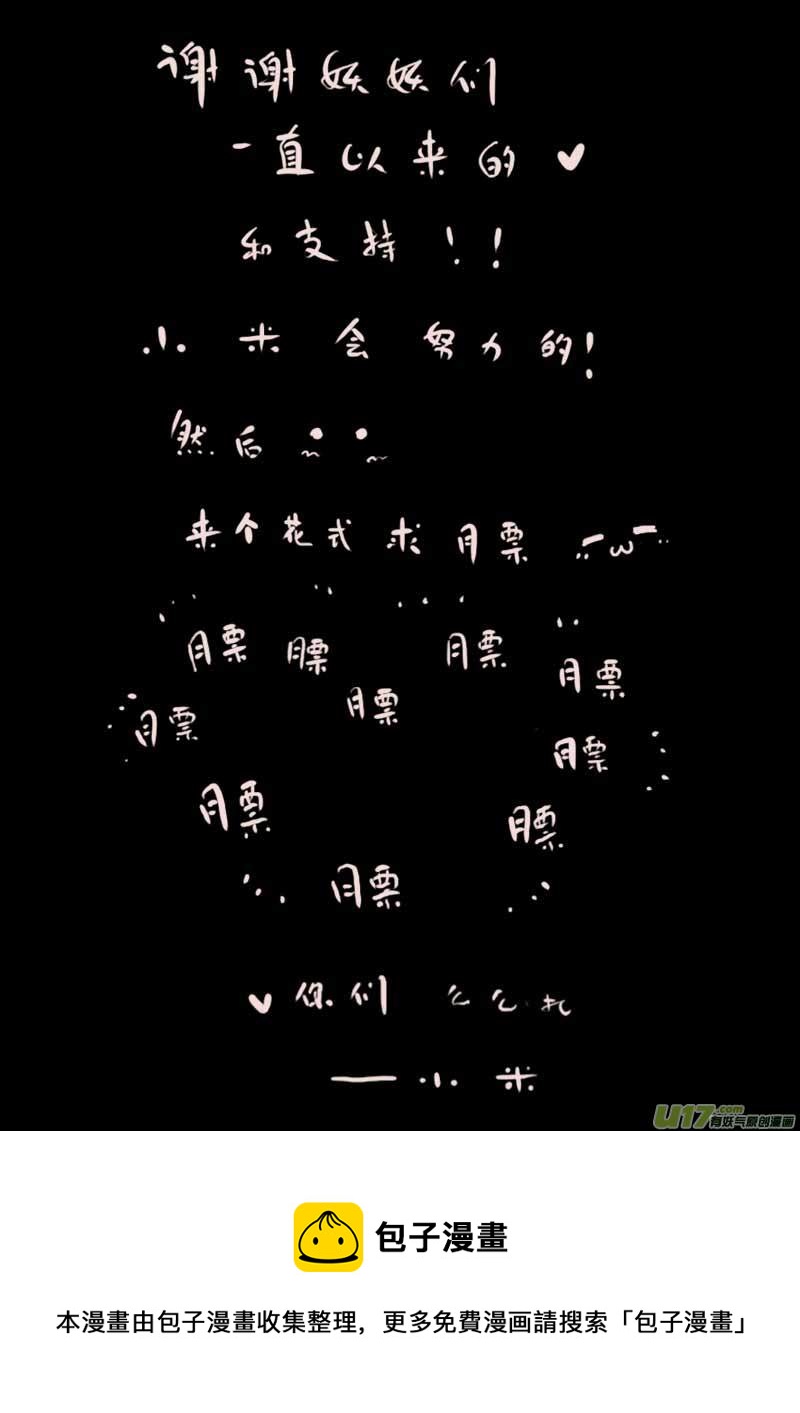 谢谢妖妖们
一直以来的♥
和支持！！
小米会努力的！
然后
来个花式求月票
月票 月票 月票 月票
月票 月票 月票
月票 月票
月票
♥你们 么么扎
——小米
U17.com
有妖气原创漫画
包子漫畫
本漫畫由包子漫畫收集整理，更多免費漫画請搜索「包子漫畫」